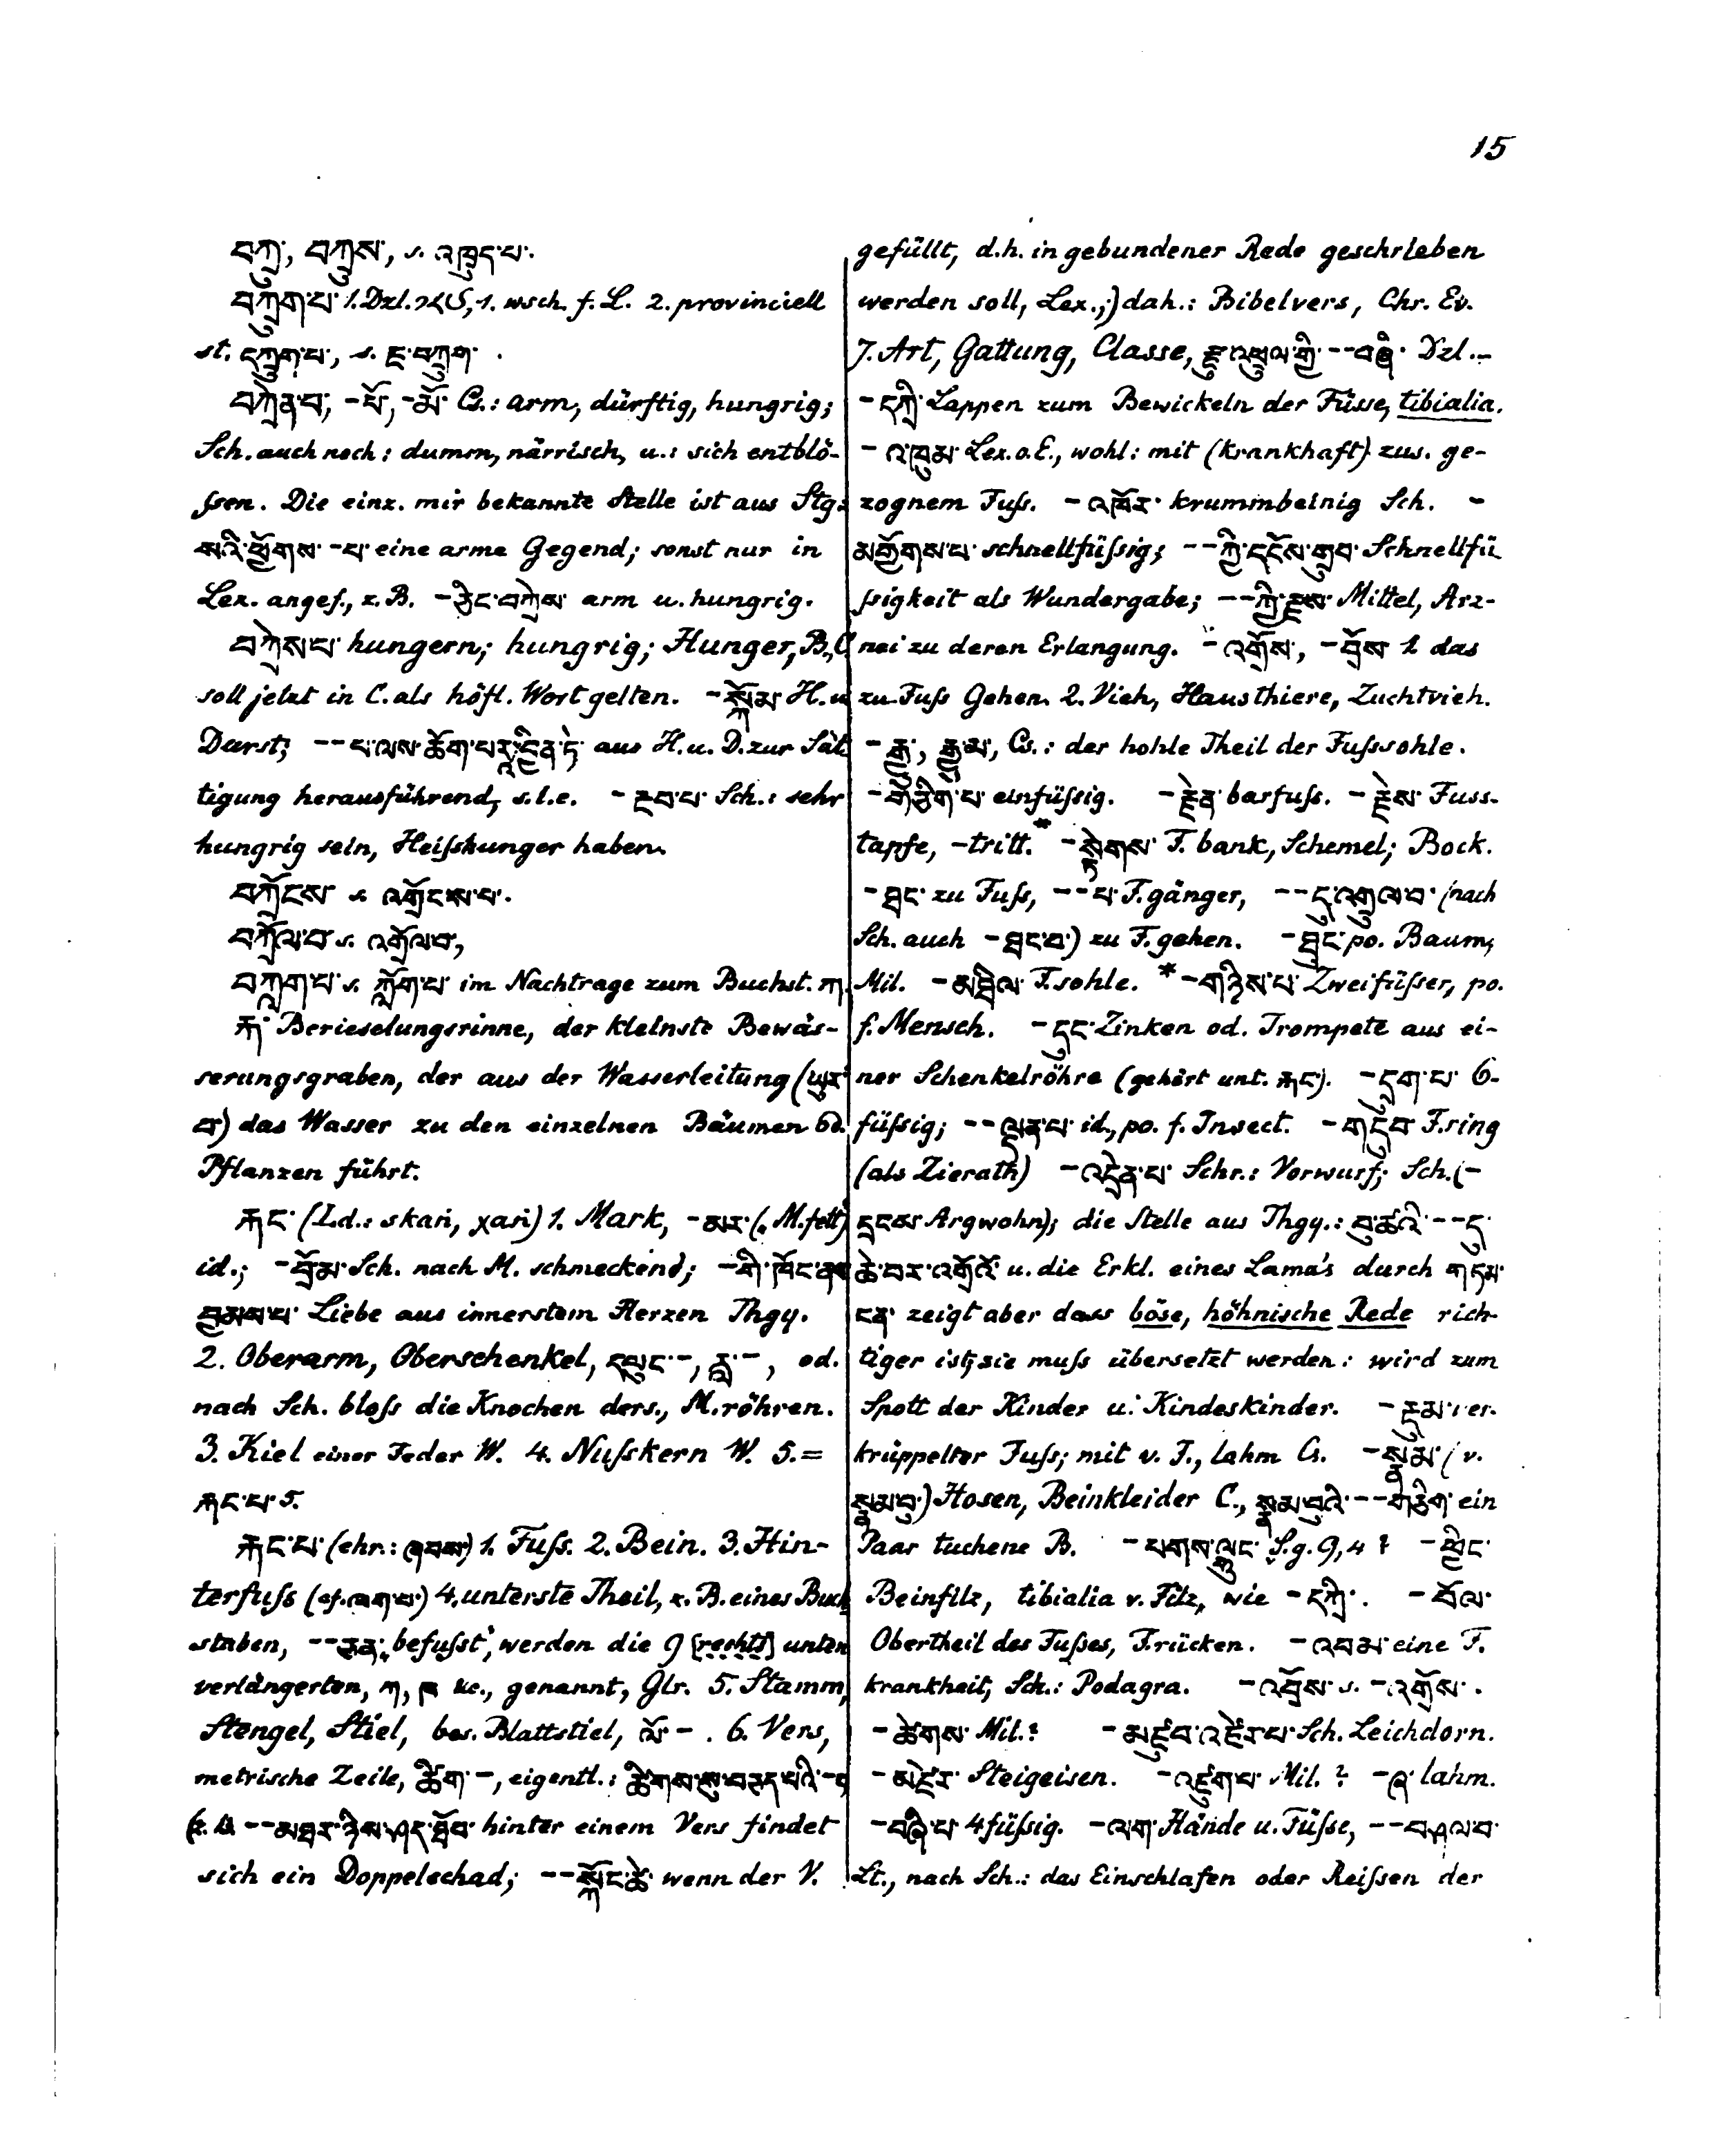 15
བཀྲུ་, བཀྲུས་, s. འཁྲུད་པ་.
བཀྲུག་པ་ 1. Dzl. 1. wsch. f. L. 2. provinciell
st. དཀྲུག་པ་, s. རྔ་བཀྲུག་.
བཀྲེན་པ་, -པོ་, -མོ་ Cs.: arm, dürftig, hungrig;
Sch. auch noch: dumm, närrisch, u.: sich entblö-
ssen. Die einz. mir bekannte Stelle ist aus Stg:
སའི་ཕྱོགས་ -པ་ eine arme Gegend; sonst nur in
Lex. angef., z.B. -ཅིང་བཀྲེས་ arm u. hungrig.
བཀྲེས་པ་ hungern; hungrig; Hunger, B., C.
soll jetzt in C. als höfl. Wort gelten. -སྐོམ་ H. u
Durst; --པ་ལས་ aus H. u. D. zur Sät
tigung herausführend, s.l.e. -ངབ་པ་ Sch.: sehr
hungrig sein, Heisshunger haben.
བཀྲོངས་ s. འགྲོངས་པ་.
བཀྲོལ་བ་ s. འགྲོལ་བ་,
བཀླག་པ་ s. ཀློག་པ་ im Nachtrage zum Buchst. ཀ.
རྐ་ Berieselungsrinne, der kleinste Bewäs-
serungsgraben, der aus der Wasserleitung (ཡུར་
བ་) das Wasser zu den einzelnen Bäumen od.
Pflanzen führt.
རྐང་ (Ld.: skaṅ, χaṅ) 1. Mark, -མར་ (M. fett)
id.; -བྲོམ་ Sch. nach M. schmeckend; -གི་ཁོང་ནས་
བྱམས་པ་ Liebe aus innerstem Herzen Thgy.
2. Oberarm, Oberschenkel, དཔུང་-, རླ་-, od.
nach Sch. bloss die Knochen ders., M. röhren.
3. Kiel einer Feder W. 4. Nusskern W. 5. =
རྐང་པ་ 5.
རྐང་པ་ (ehr.: ཞབས་) 1. Fuss. 2. Bein. 3. Hin-
terfuss (cf. ལག་པ་) 4. unterste Theil, z.B. eines Buch
staben, --ཅན་ „befusst“, werden die 9 [rechts] unten
verlängerten, ཀ, &c., genannt, Glr. 5. Stamm,
Stengel, Stiel, bes. Blattstiel, ལོ་-. 6. Vers,
metrische Zeile, ཚིག་-, eigentl.: ཚིགས་སུ་བཅད་པའི་--,
--མཐར་ཉིས་ཤད་ཐོབ་ hinter einem Vers findet
sich ein Doppelschad; --སྐོང་ཚེ་ wenn der V.
gefüllt, d.h. in gebundener Rede geschrieben
werden soll, Lex.;) dah.: Bibelvers, Chr. Ev.
7. Art, Gattung, Classe, རྫུ་འཕྲུལ་གྱི་--བཞི་ Dzl. –
-དཀྲི་ Lappen zum Bewickeln der Füsse, tibialia.
-འཁུམ་ Lex. o. E., wohl: mit (krankhaft) zus. ge-
zognem Fuss. -འཁོར་ krummbeinig Sch. -
མགྱོགས་པ་ schnellfüssig; --ཀྱི་དངོས་གྲུབ་ Schnellfü
ssigkeit als Wundergabe; --ཀྱི་རྫས་ Mittel, Arz-
nei zu deren Erlangung. -འགྲོས་, -བྲོས་ 1. das
zu Fuss Gehen. 2. Vieh, Hausthiere, Zuchtvieh.
-རྒྱ་, རྒྱ་མ་, Cs.: der hohle Theil der Fusssohle.
-གཅིག་པ་ einfüssig. -རྗེན་ barfuss. -རྗེས་ Fuss-
tapfe, -tritt. * -སྟེགས་ F. bank, Schemel; Bock.
-ཐང་ zu Fuss, --པ་ F. gänger, --དུ་འགྲུལ་བ་ (nach
Sch. auch -ཐང་བ་) zu F. gehen. -འཐུང་ po. Baum,
Mil. -མཐིལ་ F. sohle. * -གཉིས་པ་ Zweifüsser, po.
f. Mensch. -དུང་ Zinken od. Trompete aus ei-
ner Schenkelröhre (gehört unt. རྐང་). -དྲུག་པ་ 6-
füssig; --ལྡན་པ་ id., po. f. Insect. -གདུབ་ F. ring
(als Zierath) -འདྲེན་པ་ Schr.: Vorwurf; Sch. (-
དྲངས་ Argwohn); die Stelle aus Thgy.: བུ་ཚའི་--དུ་
ཆེ་བར་འགྲོའོ་ u. die Erkl. eines Lama's durch གཏམ་
ངན་ zeigt aber dass böse, höhnische Rede rich-
tiger ist; sie muss übersetzt werden: wird zum
Spott der Kinder u. Kindeskinder. -རྡུམ་ ver-
krüppelter Fuss; mit v. F., lahm Cs. -སྣམ་ (v.
སྣམ་བུ་) Hosen, Beinkleider C., སྣམ་བུའི་--གཅིག་ ein
Paar tuchene B. -པགས་ལྷུང་ S.g. 9,4? -ཕྱིང་
Beinfilz, tibialia v. Filz, wie -དཀྲི་. -བོལ་
Obertheil des Fusses, F. rücken. -འབམ་ eine F.
krankheit, Sch.: Podagra. -འབྲོས་ s. -འགྲོས་.
-ཚེགས་ Mil.? -མཛུབ་འཛེར་པ་ Sch. Leichdorn.
-མཛེར་ Steigeisen. -འཛུག་པ་ Mil.? -ཞ་ lahm.
-བཞི་པ་ 4füssig. -ལག་ Hände u. Füsse, --བཤལ་བ་
Lt., nach Sch.: das Einschlafen oder Reissen der